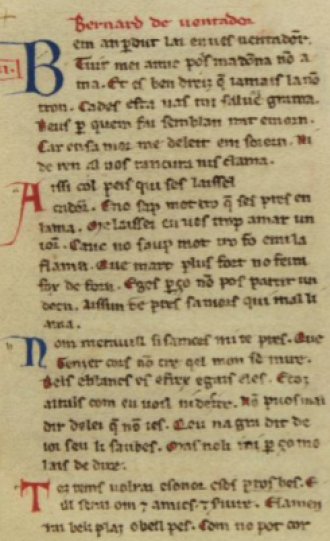 Bernard de uentador
Bem an pdut lai enues uentadorn.
Tuit mei amic pos madōna nō a
ma. Et es ben dreiz q iamais lai nō
torn. Cades esta uas mi saluaг grama.
Veus p quem fai semblan
Car en sa mor me deleit em soiorn. Ni
de ren al nos rancura nis clama.
Aissi col peis qui ses laissel
cadorn. E no sap mot tro q ses pres en
lama. Me laissei eu ues trop amar un
iorn. Canc no saup mot tro fo en la
flama. Que mart plus fort no feira
for de forn. E ges p ço nō pos partir un
dorn. Aissim te pres samors qui mal li
ama.
Nom merauil si samors mi te pres. Que
genzer cors nō cre qel mon se mire.
Bels e blancs es e fresc e gais e les. E toz
aitals com eu uoil e desire. Nō puos mal
dir de lei q nō i es. Qeu nagra dit de
ioi seu li saubes. Mas noli sai p ço mo
lais de dire.
Toz tems uolrai sonor e sos pros bes. E
il serai om e amics e siure. E lamerai
rai be li plaz o bel pes. Com no pot cor